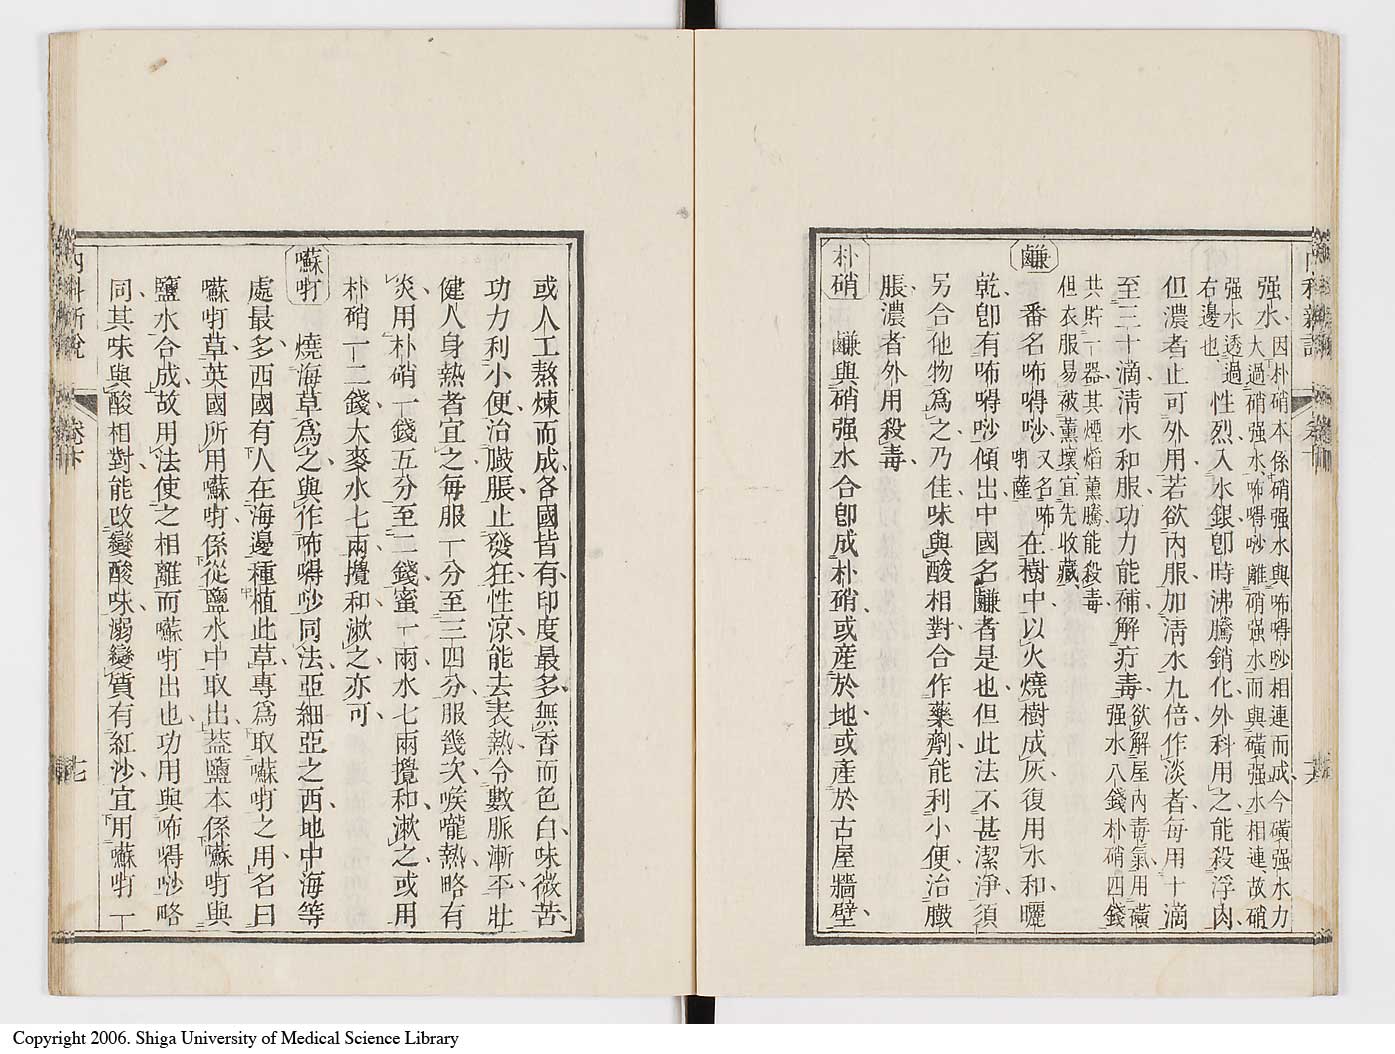 强水因朴硝本係硝强水與㖊嘚吵相連而成今磺强水力
大過硝强水㖊嘚吵離硝强水而與磺强水相連故硝
强水透過
右邊也性烈入水銀卽時沸騰銷化外科用之能殺浮肉
但濃者止可外用若欲內服加淸水九倍作淡者每用十滴
至三十滴淸水和服功力能補解疔毒欲解屋內毒氣用磺
强水八錢朴硝四錢
共貯一器其煙熖薰騰能殺毒
但衣服易被薰壞宜先收藏
鹻
番名㖊嘚吵又名㖊
哷薩在樹中以火燒樹成灰復用水和曬
乾卽有㖊嘚吵傾出中國名鹻者是也但此法不甚潔淨須
另合他物爲之乃佳味與酸相對合作藥劑能利小便治臌
脹濃者外用殺毒
朴硝
鹻與硝强水合卽成朴硝或産於地或產於古屋牆壁
或人工熬煉而成各國皆有印度最多無香而色白味微苦
功力利小便治臌脹止發狂性涼能去表熱令數脈漸平壯
健人身熱者宜之每服一分至三四分服幾次喉嚨熱略有
炎用朴硝一錢五分至二錢蜜一兩水七兩攪和漱之或用
朴硝一二錢大麥水七兩攪和漱之亦可
囌哷
燒海草爲之與作㖊嘚吵同法亞細亞之西地中海等
處最多西國有人在海邊種植此草專爲取囌哷之用名曰
囌哷草英國所用囌哷係從鹽水中取出葢鹽本係囌哷與
鹽水合成故用法使之相離而囌哷出也功用與㖊嘚吵略
同其味與酸相對能改變酸味溺變質有紅沙宜用囌哷一
內科新說
卷下
七
Copyright 2006. Shiga University of Medical Science Library